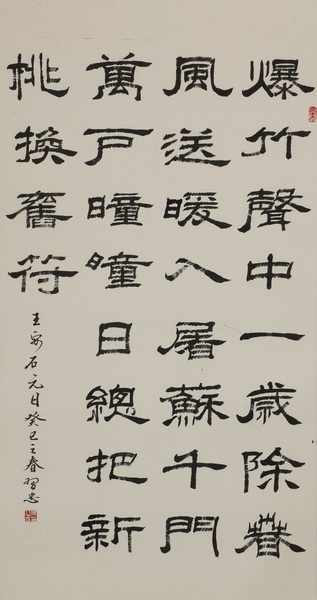 爆竹聲中一歲除春
風送暖入屠蘇千門
萬戶曈曈日總把新
桃換舊符
王安石元日癸巳之春